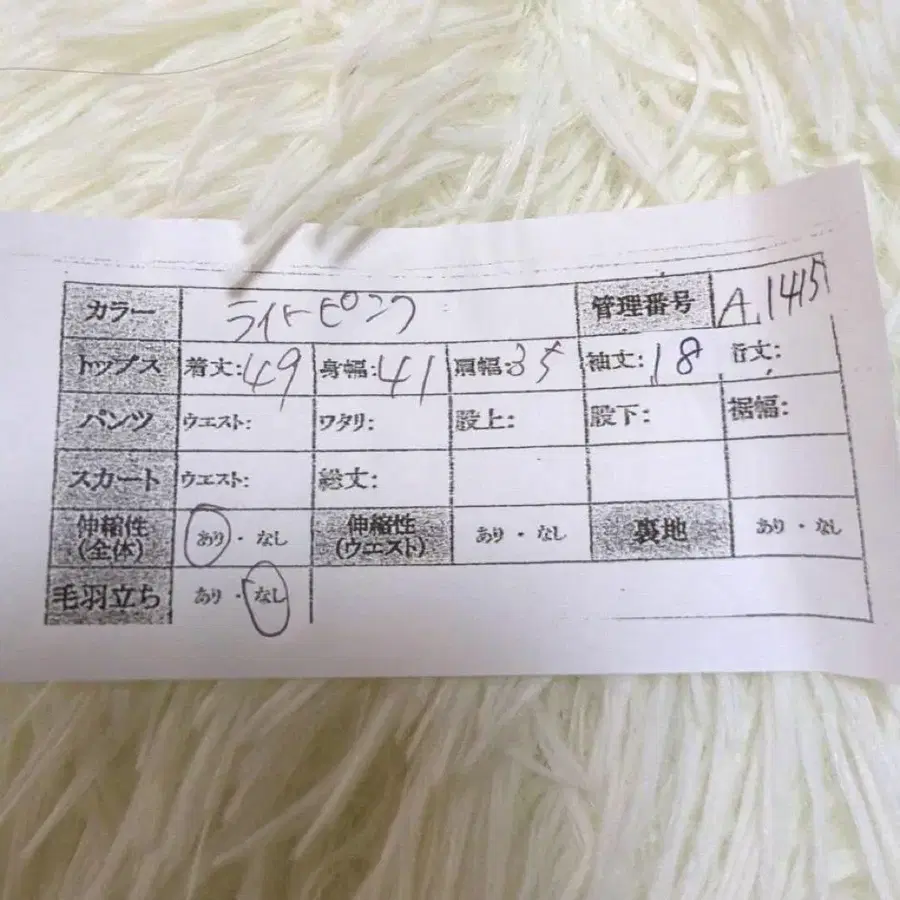 カラー ライトピンク 管理番号 A 1415
トップス 着丈:49 身幅:41 肩幅:35 袖丈:18 行丈:
パンツ ウエスト: ワタリ: 股上: 股下: 裾幅:
スカート ウエスト: 総丈:
伸縮性(全体) あり・なし 伸縮性(ウエスト) あり・なし 裏地 あり・なし
毛羽立ち あり・なし